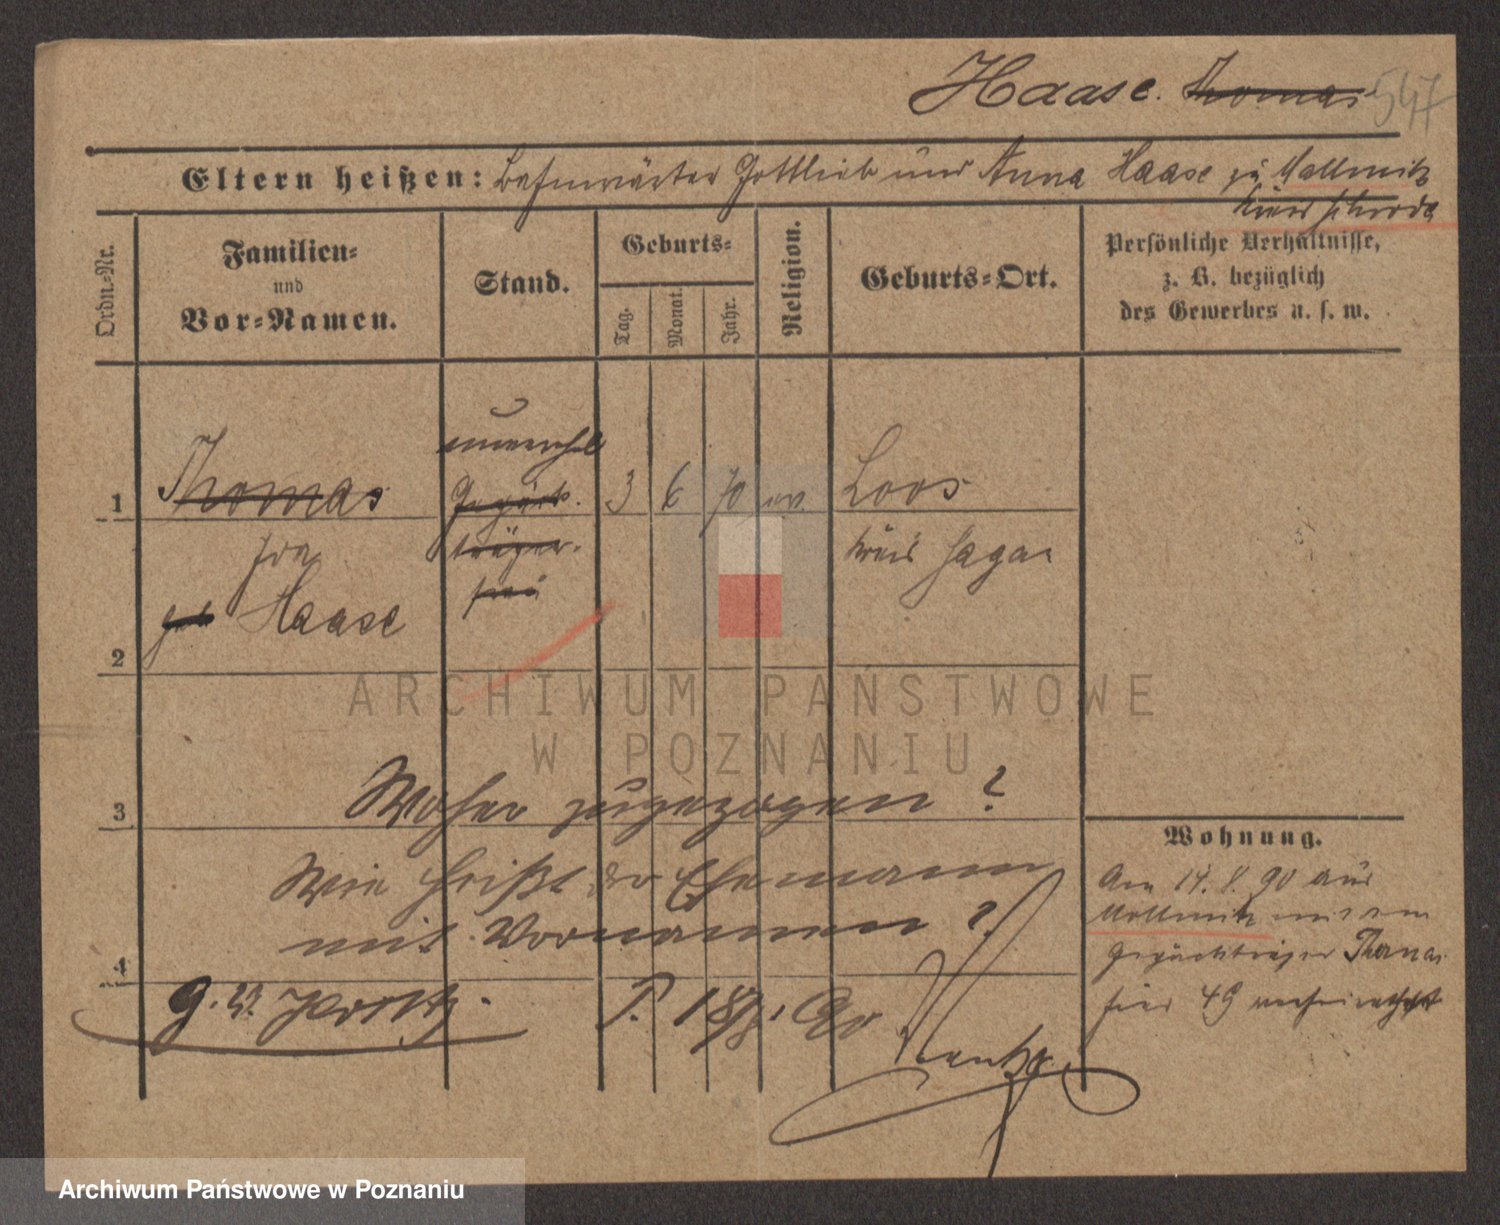 Haase. Thomas 547
Eltern heißen: Bahnwärter Gottlieb und Anna Haase zu Mallmitz
Kreis
Ordn.-Nr.
Familien-
und
Vor-Namen.
Stand.
Geburts-
Tag.
Monat.
Jahr.
Religion.
Geburts-Ort.
Persönliche Verhältnisse,
z. B. bezüglich
des Gewerbes u. s. w.
1 Thomas unverehel Gepäck- 3 6 70 ev. Loos
träger- Kreis Sagan
frau
geb Haase
2
3 Woher zugezogen ?
Wie heißt der Ehemann
mit Vornamen ?
4
g. R. P. 18/8. 90
Wohnung.
Am 14. 8. 90 aus
Mallmitz mit dem
Gepäckträger Thomas
hier 49 verheirathet
ARCHIWUM PAŃSTWOWE
W POZNANIU
Archiwum Państwowe w Poznaniu